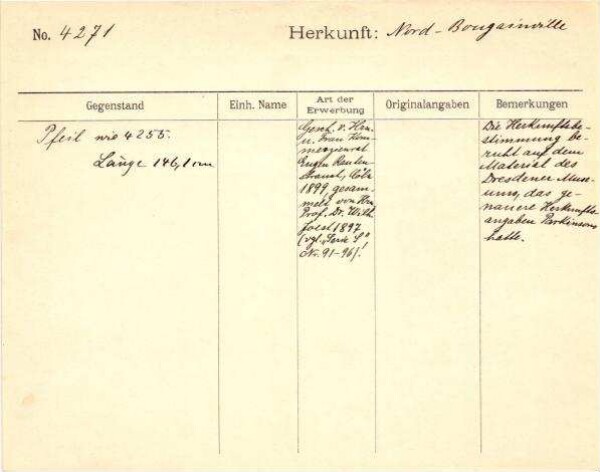 No. 4271
Herkunft: Nord-Bougainville
Gegenstand
Einh. Name
Art der
Erwerbung
Originalangaben
Bemerkungen
Pfeil wie 4255.
Länge 146,1 cm
Gesch. v. Hrn.
u. Frau Kom-
merzienrat
Eugen Rauten-
strauch, Cöln
1899, gesam-
melt von Hrn.
Prof. Dr. Wilh.
Joest 1897
(vgl. "Serie S"
Nr. 91-96)!
Die Herkunftsbe-
stimmung be-
ruht auf dem
Material des
Dresdener Muse-
ums, das ge-
nauere Herkunfts-
angaben Parkinsons
hatte.